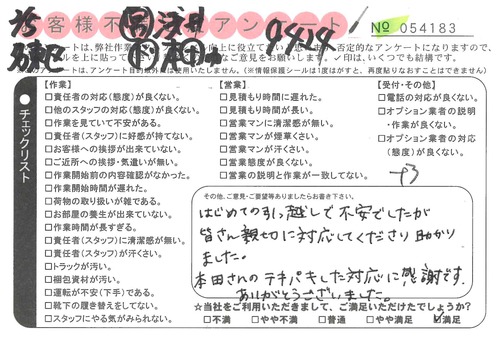 お客様不満足アンケート
No 054183
0424
ートは、弊社作業
否定的なアンケートになりますので、
ご意見をお願いします。✓印は、いくつでも結構です。
アンケート目的以外には使用いたしません。（※情報保護シールは1度はがすと、再度貼りなおすことはできません）
チェックリスト
【作業】
□責任者の対応(態度)が良くない。
□他のスタッフの対応(態度)が良くない。
□作業を見ていて不安がある。
□責任者(スタッフ)に好感が持てない。
□お客様への挨拶が出来ていない。
□ご近所への挨拶・気遣いが無い。
□作業開始前の内容確認がなかった。
□作業開始時間が遅れた。
□荷物の取り扱いが雑である。
□お部屋の養生が出来ていない。
□作業時間が長すぎる。
□責任者(スタッフ)に清潔感が無い。
□責任者(スタッフ)が汗くさい。
□トラックが汚い。
□梱包資材が汚い。
□運転が不安(下手)である。
□靴下の履き替えをしてない。
□スタッフにやる気がみられない。
【営業】
□見積もり時間に遅れた。
□見積もり時間が長い。
□営業マンに清潔感が無い。
□営業マンが煙草くさい。
□営業マンが汗くさい。
□営業態度が良くない。
□営業の説明と作業が一致してない。
【受付・その他】
□電話の対応が良くない。
□オプション業者の説明
・作業が良くない。
□オプション業者の対応
(態度)が良くない。
その他、ご意見・ご要望等ありましたらお書き下さい。
はじめての引っ越しで不安でしたが
皆さん親切に対応してくださり助かり
ました。
本田さんのテキパキした対応に感謝です。
ありがとうございました。
☆当社をご利用いただきまして、ご満足いただけたでしょうか？
□不満 □やや不満 □普通 □やや満足 ☑満足